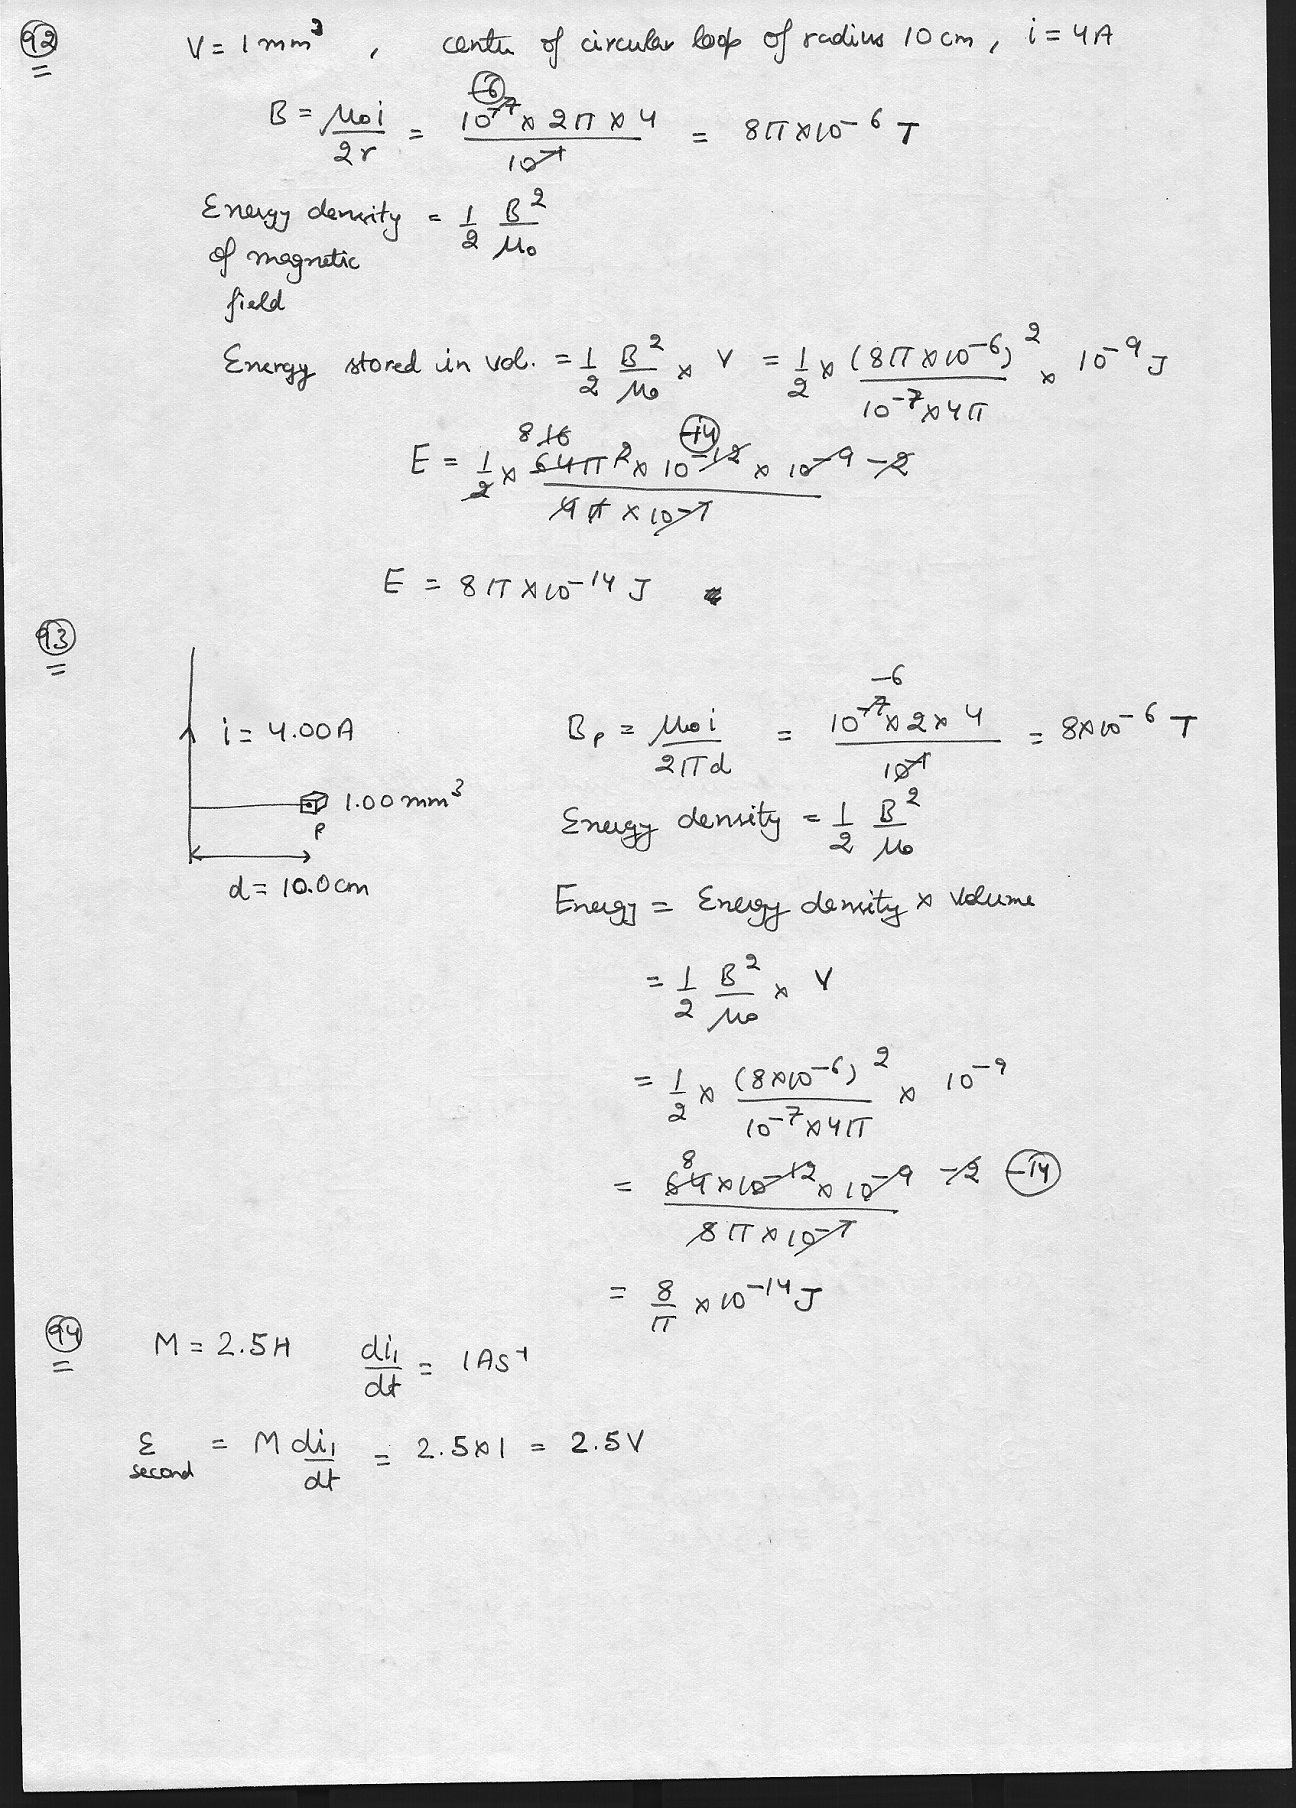 92
V = 1 mm³, centre of circular loop of radius 10 cm, i = 4A
B = μ₀i / 2r = 10⁻⁷ × 2π × 4 / 10⁻¹ = 8π × 10⁻⁶ T
-6
Energy density = 1/2 B²/μ₀
of magnetic
field
Energy stored in vol. = 1/2 B²/μ₀ × V = 1/2 × (8π × 10⁻⁶)² / 10⁻⁷ × 4π × 10⁻⁹ J
8 16 -14
E = 1/2 × 64π² × 10⁻¹² × 10⁻⁹ -2 / 4π × 10⁻⁷
E = 8π × 10⁻¹⁴ J
93
i = 4.00A
1.00 mm³
P
d = 10.0 cm
-6
Bₚ = μ₀i / 2πd = 10⁻⁷ × 2 × 4 / 10⁻¹ = 8 × 10⁻⁶ T
Energy density = 1/2 B²/μ₀
Energy = Energy density × Volume
= 1/2 B²/μ₀ × V
= 1/2 × (8 × 10⁻⁶)² / 10⁻⁷ × 4π × 10⁻⁹
8
= 64 × 10⁻¹² × 10⁻⁹ / 8π × 10⁻⁷ -2 -14
= 8/π × 10⁻¹⁴ J
94
M = 2.5H di₁/dt = 1 A s⁻¹
ε second = M di₁/dt = 2.5 × 1 = 2.5 V